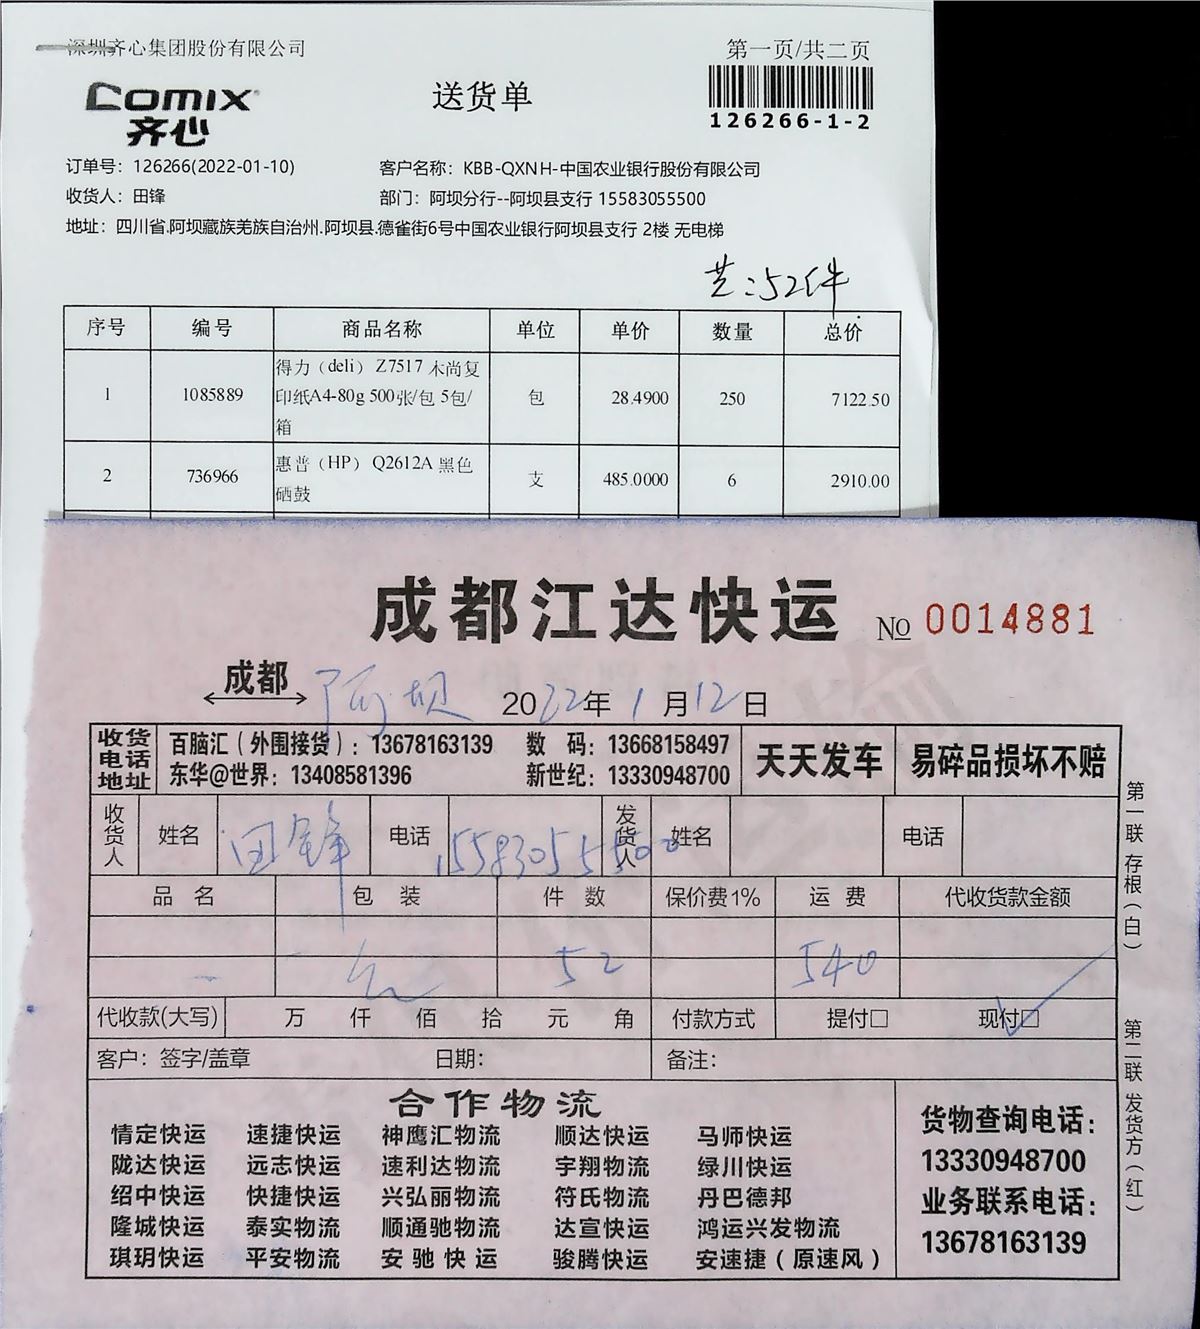 深圳齐心集团股份有限公司
第一页/共二页
COMIX
齐心
送货单
126266-1-2
订单号：126266(2022-01-10) 客户名称：KBB-QXNH-中国农业银行股份有限公司
收货人：田锋 部门：阿坝分行--阿坝县支行 15583055500
地址：四川省.阿坝藏族羌族自治州.阿坝县.德雀街6号中国农业银行阿坝县支行 2楼 无电梯
共：52件
序号 编号 商品名称 单位 单价 数量 总价
1 1085889 得力（deli）Z7517 木尚复印纸A4-80g 500张/包 5包/箱 包 28.4900 250 7122.50
2 736966 惠普（HP）Q2612A 黑色硒鼓 支 485.0000 6 2910.00
成都江达快运
№ 0014881
成都 阿坝 2022年1月12日
收货电话地址 百脑汇（外围接货）：13678163139 数码：13668158497 天天发车 易碎品损坏不赔
东华@世界：13408581396 新世纪：13330948700
收货人 姓名 田锋 电话 15583055500 发货人 姓名 电话
品名 包装 件数 保价费1% 运费 代收货款金额
52 540
代收款(大写) 万 仟 佰 拾 元 角 付款方式 提付□ 现付□
客户：签字/盖章 日期： 备注：
合作物流
情定快运 速捷快运 神鹰汇物流 顺达快运 马师快运
陇达快运 远志快运 速利达物流 宇翔物流 绿川快运
绍中快运 快捷快运 兴弘丽物流 符氏物流 丹巴德邦
隆城快运 泰实物流 顺通驰物流 达宣快运 鸿运兴发物流
琪玥快运 平安物流 安驰快运 骏腾快运 安速捷（原速风）
货物查询电话：
13330948700
业务联系电话：
13678163139
第一联 存根（白）
第二联 发货方（红）